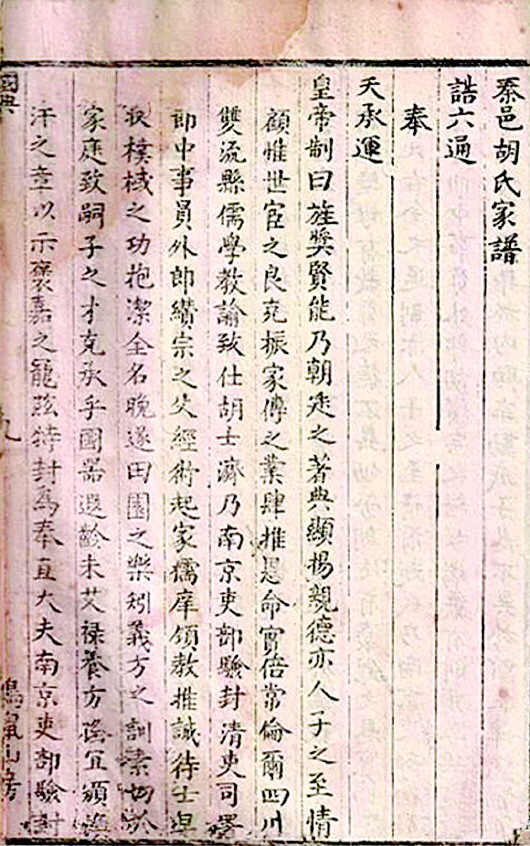 泰邑胡氏家譜
誥六通
奉
天承運
皇帝制曰旌奬賢能乃朝廷之著典顯揚親德亦人子之至情
顧惟世宦之良克振家傳之業肆推恩命實倍常倫爾四川
雙流縣儒學教諭致仕胡士濂乃南京吏部驗封清吏司署
郎中事員外郎纘宗之父經術起家儒庠領教推誠待士早
收樸棫之功抱潔全名晚遂田園之樂矧義方之訓素
家庭致嗣子之才克承乎國器遐齡未艾祿養方宜頒渙
汗之章以示褒嘉之寵玆特封為奉直大夫南京吏部驗封
國典
九
鳥鼠山房